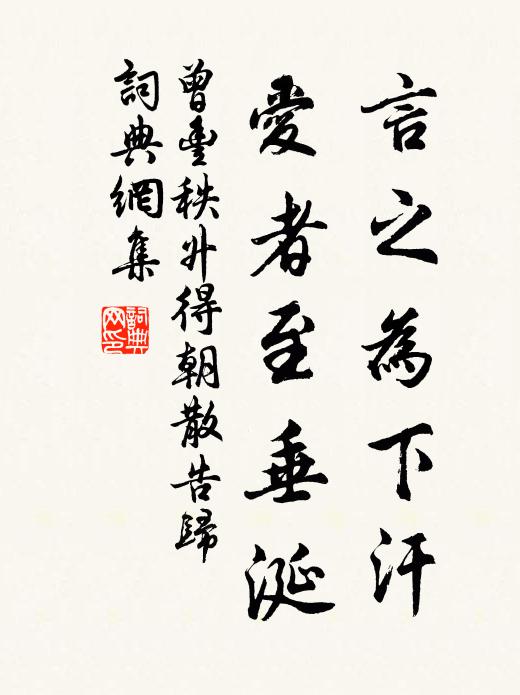 言之為下汗
愛者至垂涎
曾豐秩外得朝散告歸
詞典網集
詞典网印